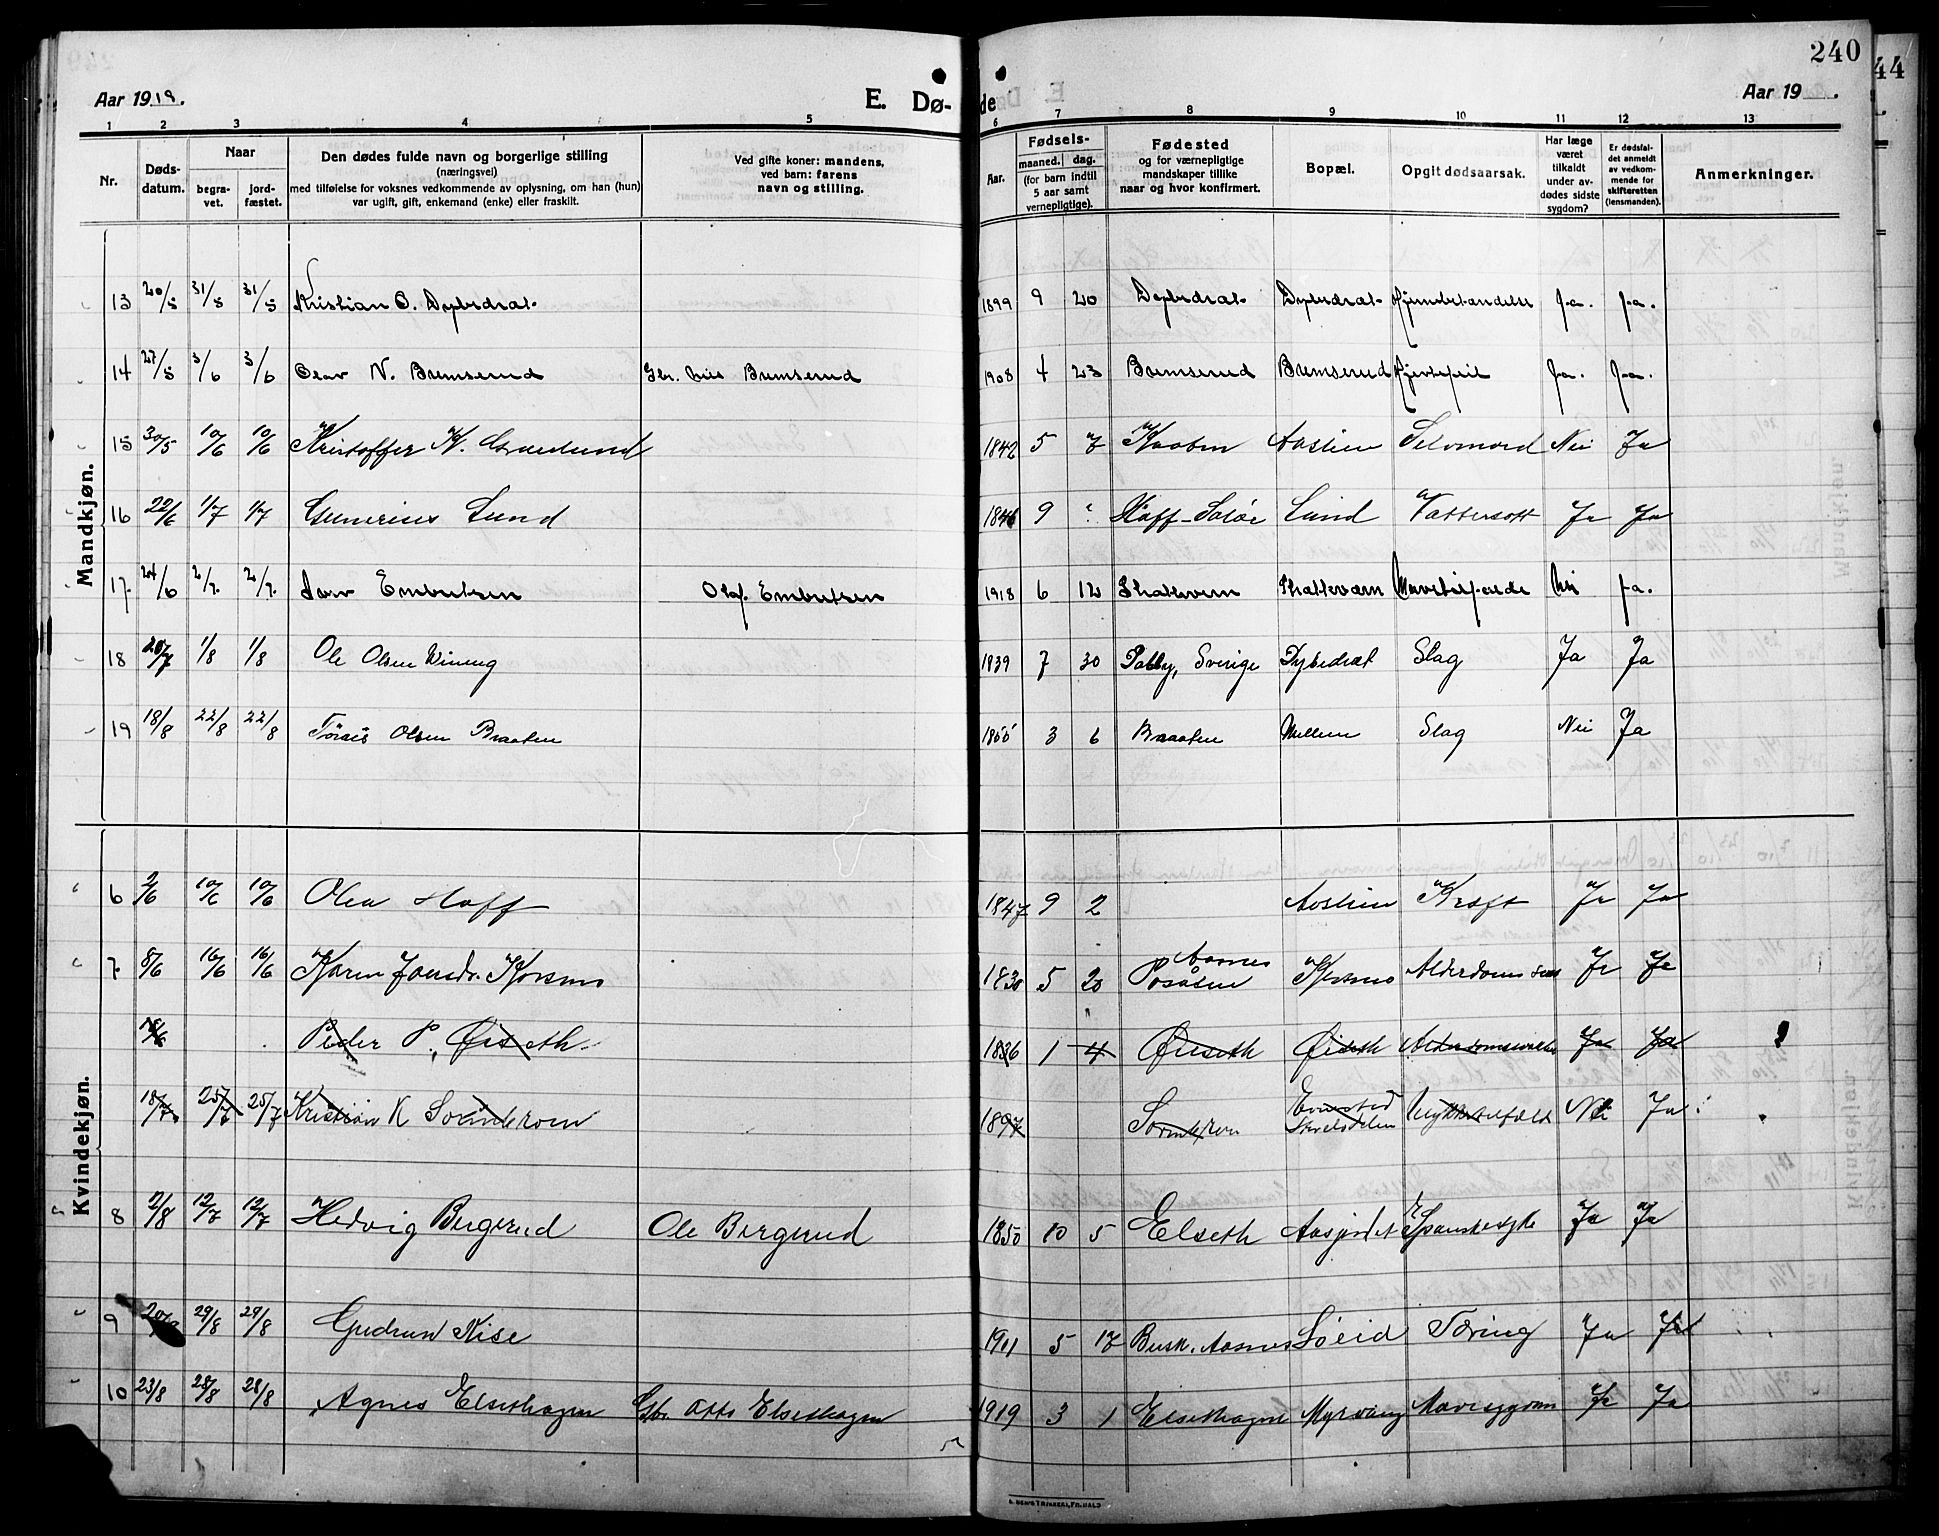 240
44
Aar 1919.
E. Dø-
de
Aar 19 .
1 2 3 4 5 6 7 8 9 10 11 12 13
Nr.
Døds-datum.
Naar
begra-vet.
jord-fæstet.
Den dødes fulde navn og borgerlige stilling
(næringsvei)
med tilføielse for voksnes vedkommende av oplysning, om han (hun)
var ugift, gift, enkemand (enke) eller fraskilt.
Ved gifte koner: mandens,
ved barn: farens
navn og stilling.
Aar.
Fødsels-
maaned. dag.
(for barn indtil
5 aar samt
vernepligtige).
Fødested
og for værnepligtige
mandskaper tillike
naar og hvor konfirmert.
Bopæl.
Opgit dødsaarsak.
Har læge
været
tilkaldt
under av-
dødes sidste
sygdom?
Er dødsfal-
det anmeldt
av vedkom-
mende for
skifteretten
(lensmanden).
Anmerkninger.
Mandkjøn.
13 20/5 31/5 31/5 Kristian O. Dybedral 1899 9 20 Dybedral Dybedral ja. ja.
14 27/5 3/6 3/6 Olav N. Bumserud Gbr. Nils Bumserud 1908 4 23 Bumserud Bumserud Hjertefeil ja. ja.
15 30/5 10/6 10/6 Kristoffer K. 1842 5 7 Kaaten Aaslien Selvmord Nei Ja
16 22/6 1/7 1/7 Gunerius Lund 1846 9 ? Hoff-Solør Lund Vattersott Ja Ja
17. 24/6 2/7. 2/7. Embretsen Olaf Embretsen 1918 6 12 Nei ja.
18 28/7 1/8 1/8 Ole Olsen Wining 1839 7 30 Sverige Dybedral Slag Ja Ja
19 18/8 22/8 22/8 Tørris Olsen Braaten 3 6 Braaten Mellem Slag Nei Ja
Kvindekjøn.
6 2/6 10/6 10/6 Olea Hoff 1847 9 2 Aaslien Kræft Ja Ja
7. 8/6 16/6 16/6 Karen Jonsdr. Kjøsmo 1830 5 20 Aasnes Kjøsmo Ja Ja
Peder P. Øiseth 1836 1 4 Øiseth Øiseth Ja Ja
25/7 25/7 Kristian K 1897 Nei Ja
8 2/8 12/7 12/7 Hedvig Bergerud Ole Bergerud 1850 10 5 Elseth Aasjordet Spanskesyke Ja Ja
9 20/8 29/8 29/8 Gudrun Kise 1911 5 17 Busk. Aasnes Søeid Tæring Ja Ja
10 23/8 28/8 28/8 Agnes Elsethagen Gbr. Otto Elsethagen 1919 3 1 Elsethagen Myrvang Mavesygdom Ja Ja